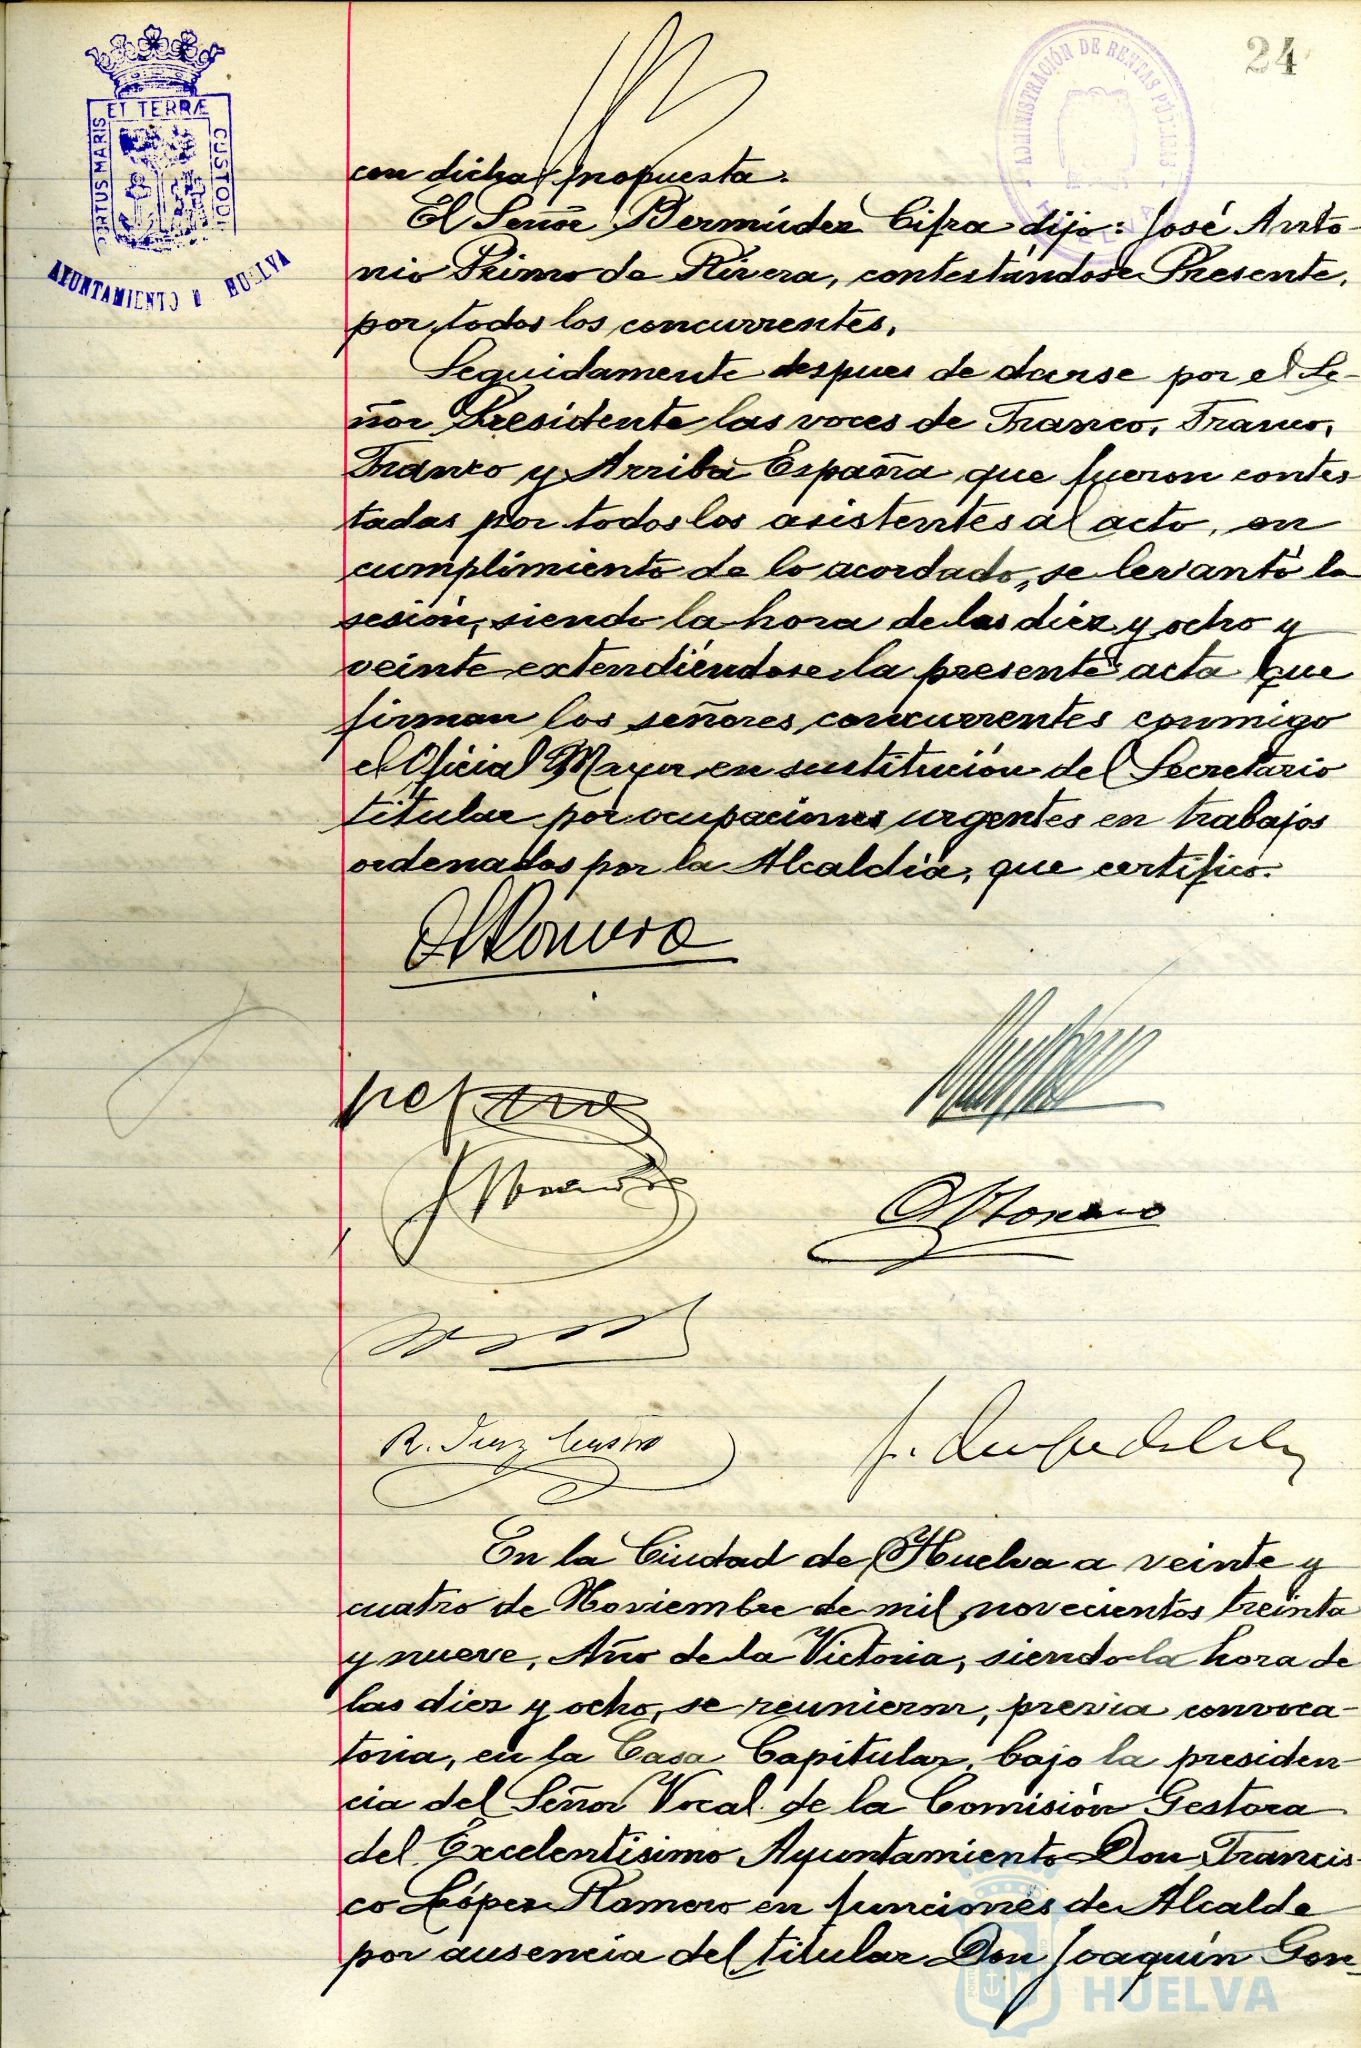 24
ET TERRÆ
PORTUS MARIS
CUSTODI
AYUNTAMIENTO HUELVA
ADMINISTRACIÓN DE RENTAS PÚBLICAS
con dicha propuesta.
El Señor Bermúdez Cifra dijo: José Anto-
nio Primo de Rivera, contestándose Presente,
por todos los concurrentes.
Seguidamente despues de darse por el Se-
ñor Presidente las voces de Franco, Franco,
Franco y Arriba España que fueron contes
tadas por todos los asistentes al acto, en
cumplimiento de lo acordado, se levantó la
sesión, siendo la hora de las diez y ocho y
veinte extendiéndose la presente acta que
firman los señores concurrentes conmigo
el Oficial Mayor en sustitución del Secretario
titular por ocupaciones urgentes en trabajos
ordenados por la Alcaldía, que certifico.
R. Diaz Castro
En la Ciudad de Huelva a veinte y
cuatro de Noviembre de mil novecientos treinta
y nueve, Año de la Victoria, siendo la hora de
las diez y ocho, se reunieron, previa convoca-
toria, en la Casa Capitular, bajo la presiden-
cia del Señor Vocal de la Comisión Gestora
del Excelentísimo Ayuntamiento Don Francis-
co López Romero en funciones de Alcalde
por ausencia del titular Don Joaquín Gon-
HUELVA